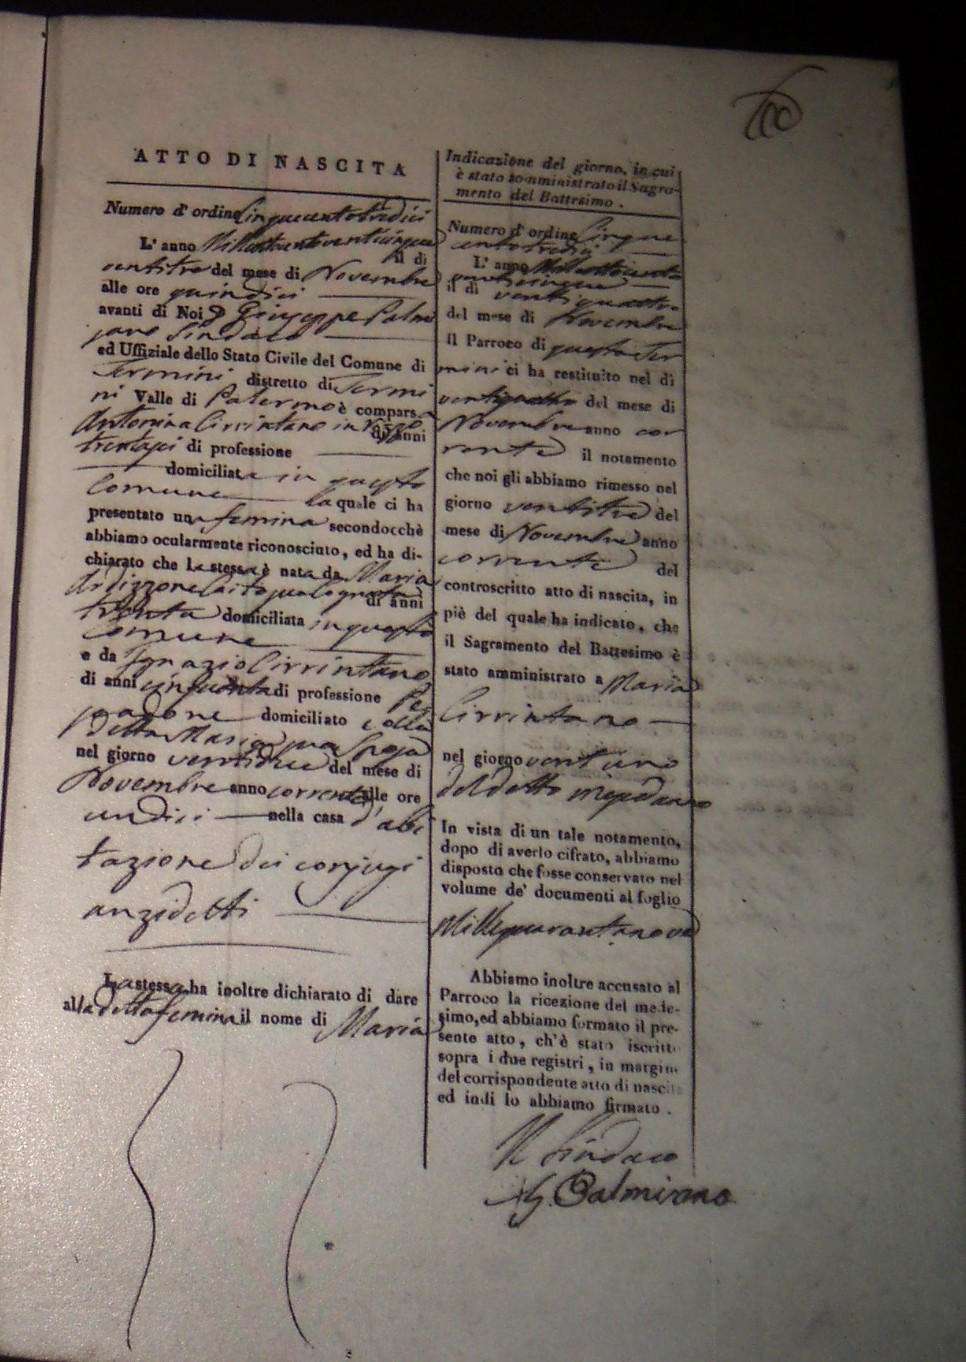 ATTO DI NASCITA
Numero d' ordine Cinquecentotredici
L' anno Milleottocentoventicinque il dì
ventitre del mese di Novembre
alle ore quindici
avanti di Noi D. Giuseppe Palmi
sano Sindaco
ed Uffiziale dello Stato Civile del Comune di
Termini distretto di Termi
ni Valle di Palermo è compars a
Antonina Cirrintano in Rizzo di anni
trentasei di professione
domiciliata in questo
Comune la quale ci ha
presentato una femina secondocchè
abbiamo ocularmente riconosciuto, ed ha di-
chiarato che la stessa è nata da Maria
di anni
trenta domiciliata in questo
Comune
e da Ignazio Cirrintano
di anni cinquanta di professione
domiciliato colla
detta Maria sua Sposa
nel giorno ventidue del mese di
Novembre anno corrente alle ore
undici nella casa d' abi
tazione dei conjugi
anzidetti
La stessa ha inoltre dichiarato di dare
alla detta femina il nome di Maria
Indicazione del giorno, in cui
è stato somministrato il Sagra-
mento del Battesimo .
Numero d' ordine Cinque
centotredici
L' anno Milleottocento
venticinque
il dì ventiquattro
del mese di Novembre
il Parroco di questa Ter
mini ci ha restituito nel dì
ventiquattro del mese di
Novembre anno cor
rente il notamento
che noi gli abbiamo rimesso nel
giorno ventitre del
mese di Novembre anno
corrente del
controscritto atto di nascita, in
piè del quale ha indicato, che
il Sagramento del Battesimo è
stato amministrato a Maria
Cirrintano
nel giorno
del detto mese ed anno
In vista di un tale notamento,
dopo di averlo cifrato, abbiamo
disposto che fosse conservato nel
volume de' documenti al foglio
Millequarantanove
Abbiamo inoltre accusato al
Parroco la ricezione del mede-
simo, ed abbiamo formato il pre-
sente atto, ch'è stato iscritto
sopra i due registri, in margine
del corrispondente atto di nascita
ed indi lo abbiamo firmato .
Il Sindaco
G. Palmisano